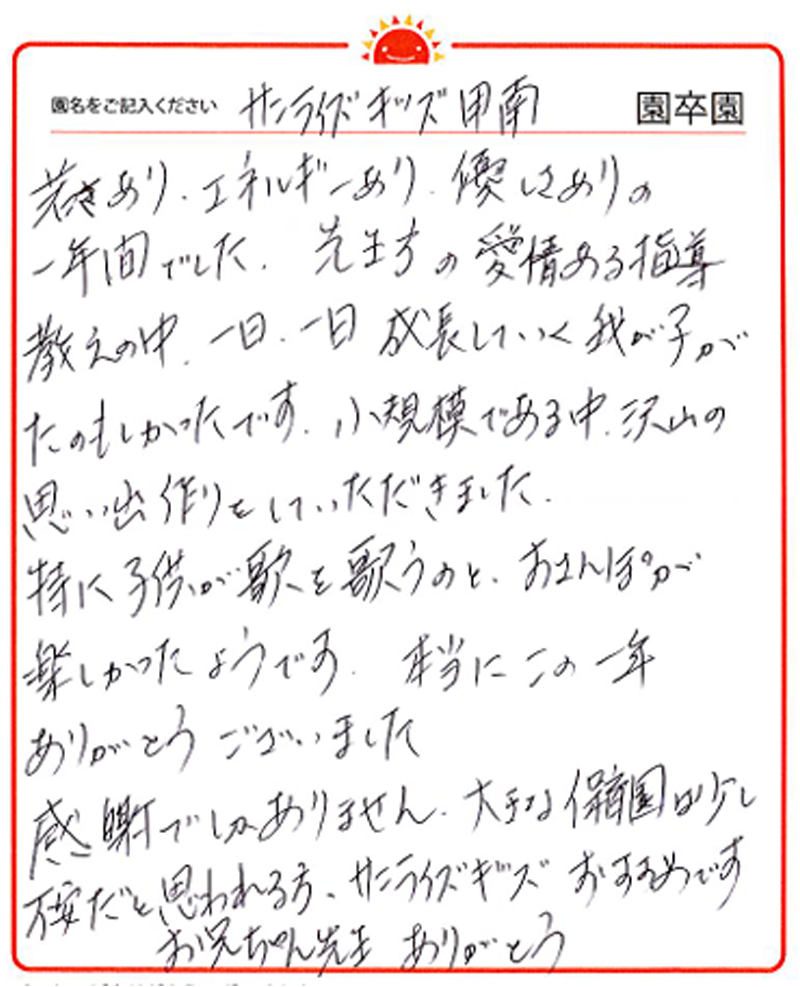 園名をご記入ください サンライズキッズ甲南 園卒園
若さあり、エネルギーあり、優しさありの
一年間でした。先生方の愛情ある指導
教えの中、一日、一日成長していく我が子が
たのもしかったです。小規模である中、沢山の
思い出作りをしていただきました。
特に子供が歌を歌うのと、おさんぽが
楽しかったようです。本当にこの一年
ありがとうございました
感謝でしかありません。大きな保育園は少し
不安だと思われる方、サンライズキッズおすすめです
お兄ちゃん先生 ありがとう